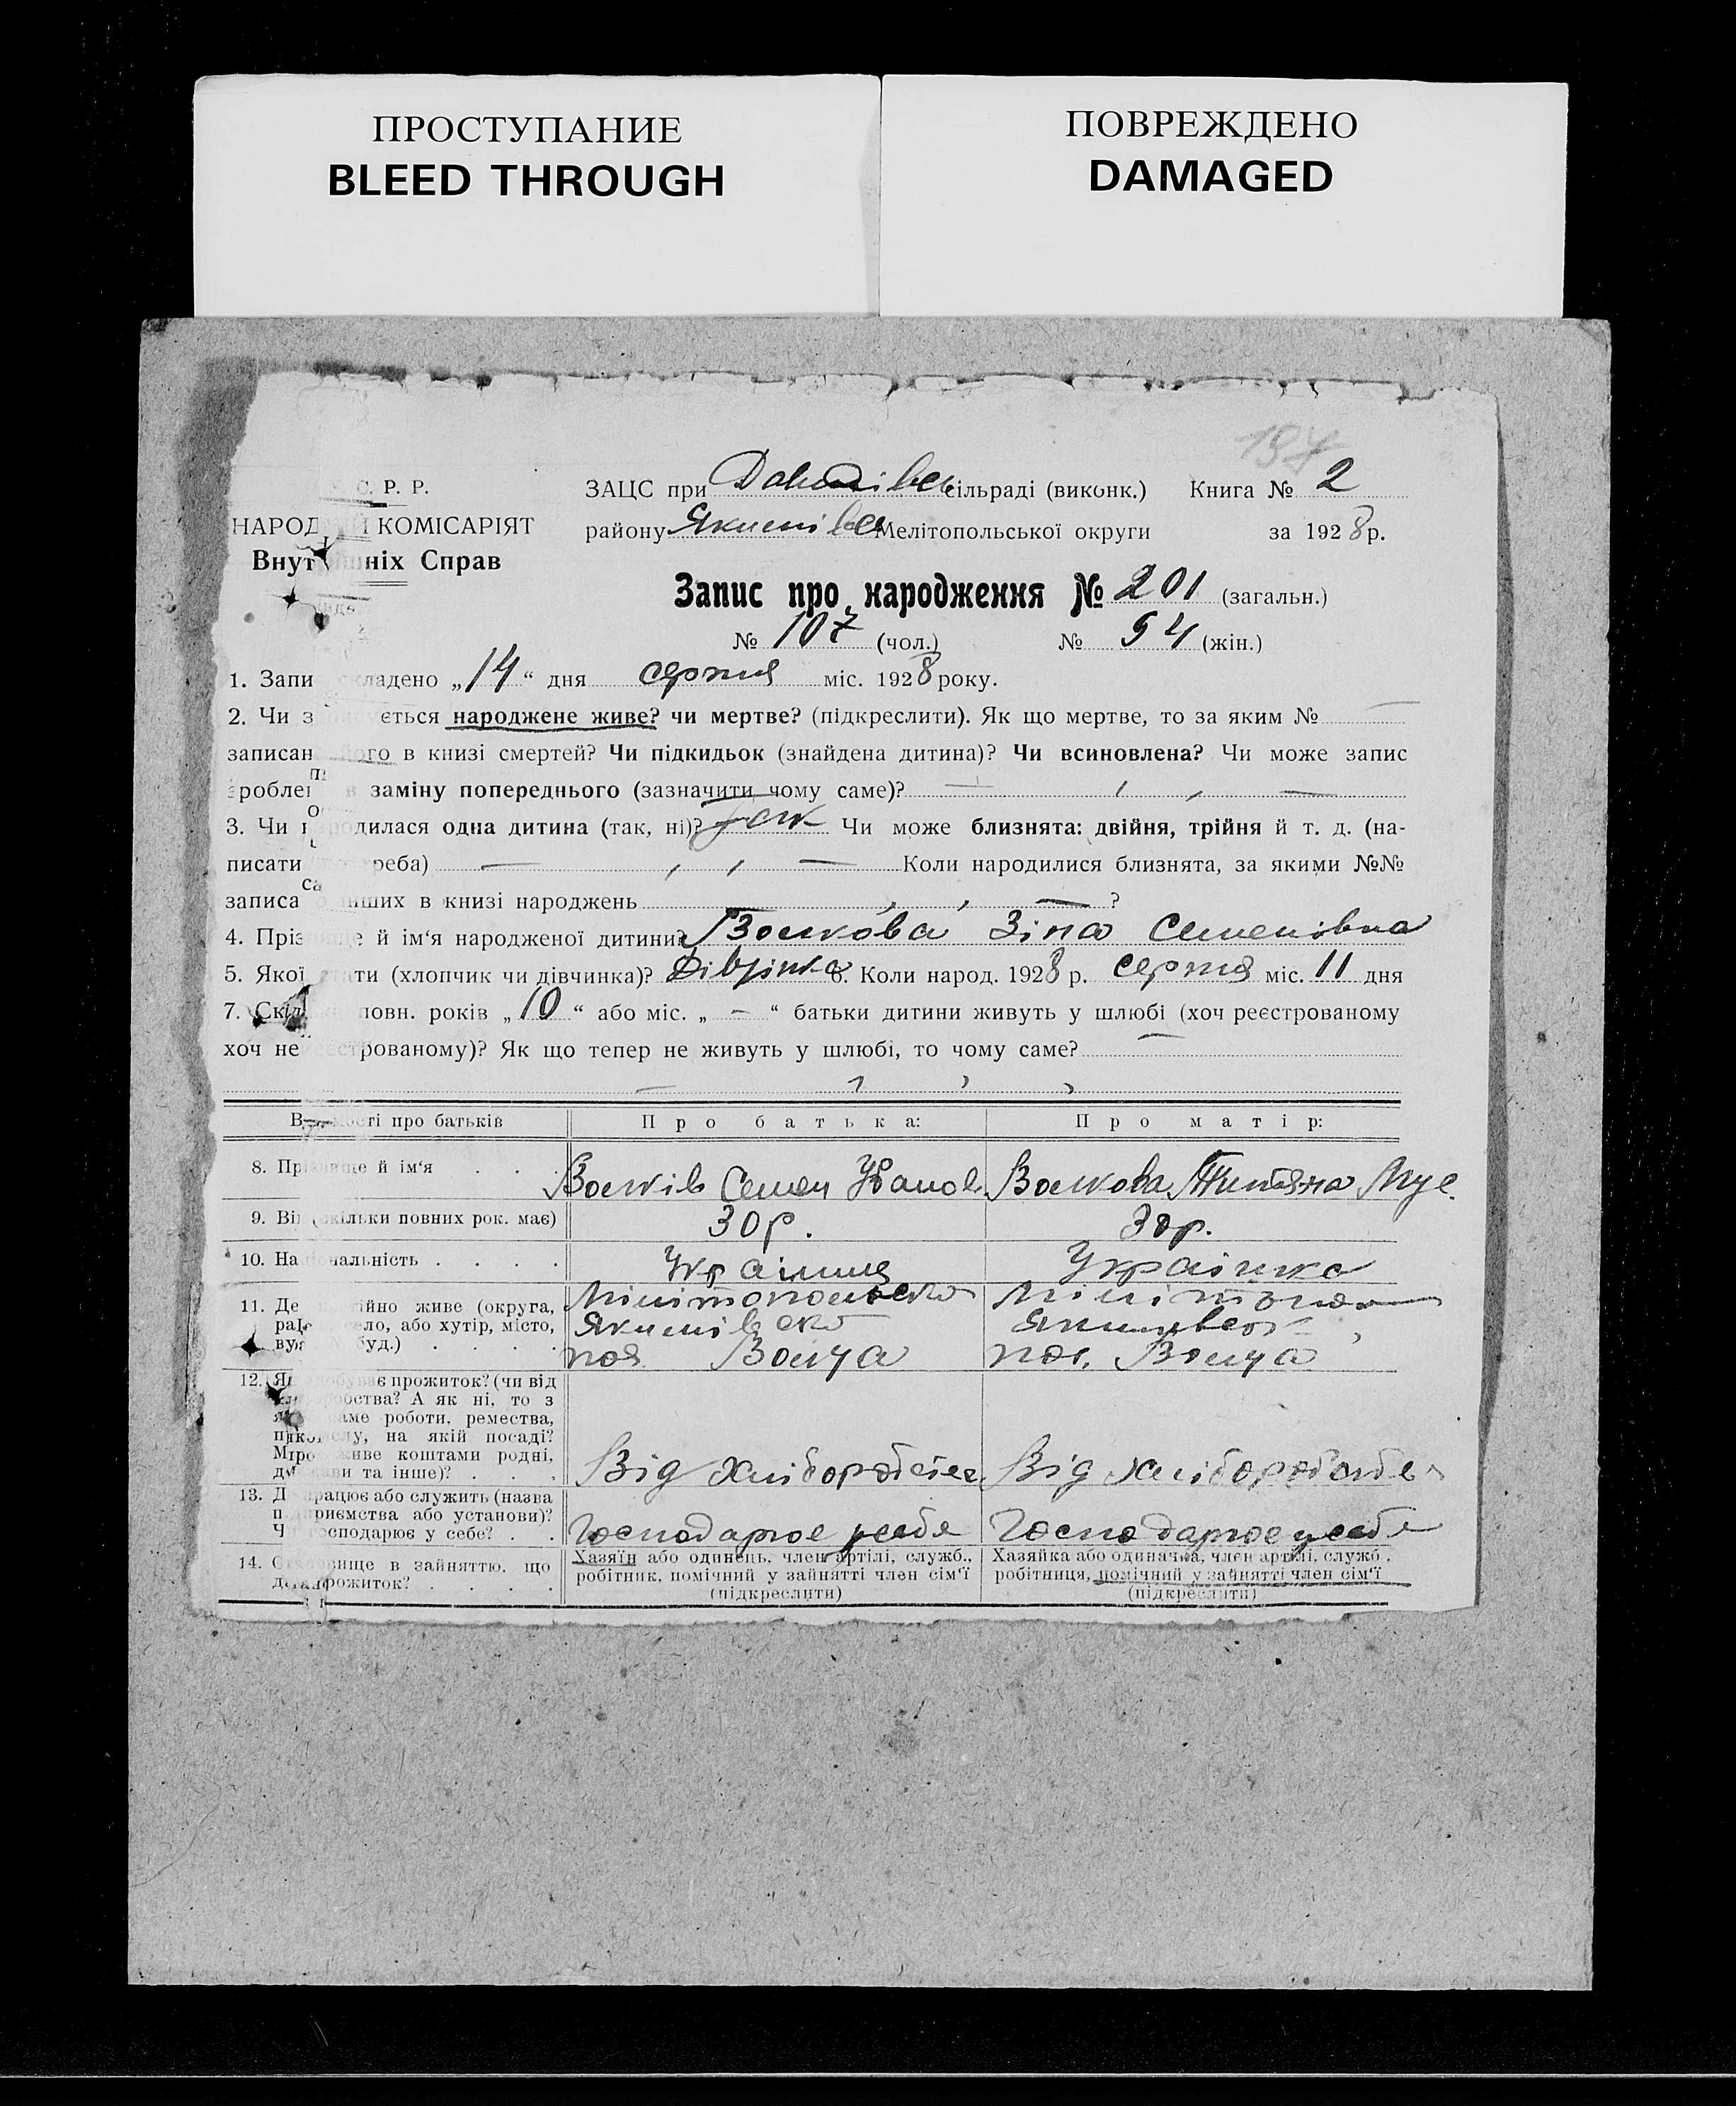 ПРОСТУПАНИЕ
BLEED THROUGH
ПОВРЕЖДЕНО
DAMAGED
197
С. Р. Р.
НАРОД КОМІСАРІЯТ
Внут ніх Справ
ЗАЦС при сільраді (виконк.) Книга № 2
району Мелітопольської округи за 1928 р.
Запис про народження № 201 (загальн.)
№ 107 (чол.) № 94 (жін.)
1. Запи кладено „14“ дня серпня міс. 1928 року.
2. Чи з ється народжене живе? чи мертве? (підкреслити). Як що мертве, то за яким №
записан його в книзі смертей? Чи підкидьок (знайдена дитина)? Чи всиновлена? Чи може запис
зроблен в заміну попереднього (зазначити чому саме)?
3. Чи родилася одна дитина (так, ні)? так Чи може близнята: двійня, трійня й т. д. (на-
писати треба) Коли народилися близнята, за якими №№
записа інших в книзі народжень ?
4. Прізвище й ім‘я народженої дитини? Волкова Зіна Семенівна
5. Якої стати (хлопчик чи дівчинка)? Дівчинка 6. Коли народ. 1928 р. серпня міс. 11 дня
7. Скільки повн. років „10“ або міс. „ – “ батьки дитини живуть у шлюбі (хоч реєстрованому
хоч не реєстрованому)? Як що тепер не живуть у шлюбі, то чому саме?
Відомості про батьків Про батька: Про матір:
8. Прізвище й ім‘я Волків Семен Іванов. Волкова Титяна Мус.
9. Вік (скільки повних рок. має) 30 р. 30 р.
10. Національність Українця Українка
11. Де постійно живе (округа,
село, або хутір, місто,
буд.)
пос. Волча пос. Волча
12. Як добуває прожиток? (чи від
хліборобства? А як ні, то з
якої саме роботи, ремества,
промислу, на якій посаді?
Може живе коштами родні,
держави та інше)? Від Від
13. Де працює або служить (назва
підприємства або установи)?
Чи господарює у себе? Господарює у себе Господарює у себе
14. Становище в зайняттю, що
дає прожиток?
Хазяїн або одинець, член артілі, служб.,
робітник, помічний у зайнятті член сім‘ї
(підкреслити)
Хазяйка або одиначка, член артілі, служб.,
робітниця, помічний у зайнятті член сім‘ї
(підкреслити)